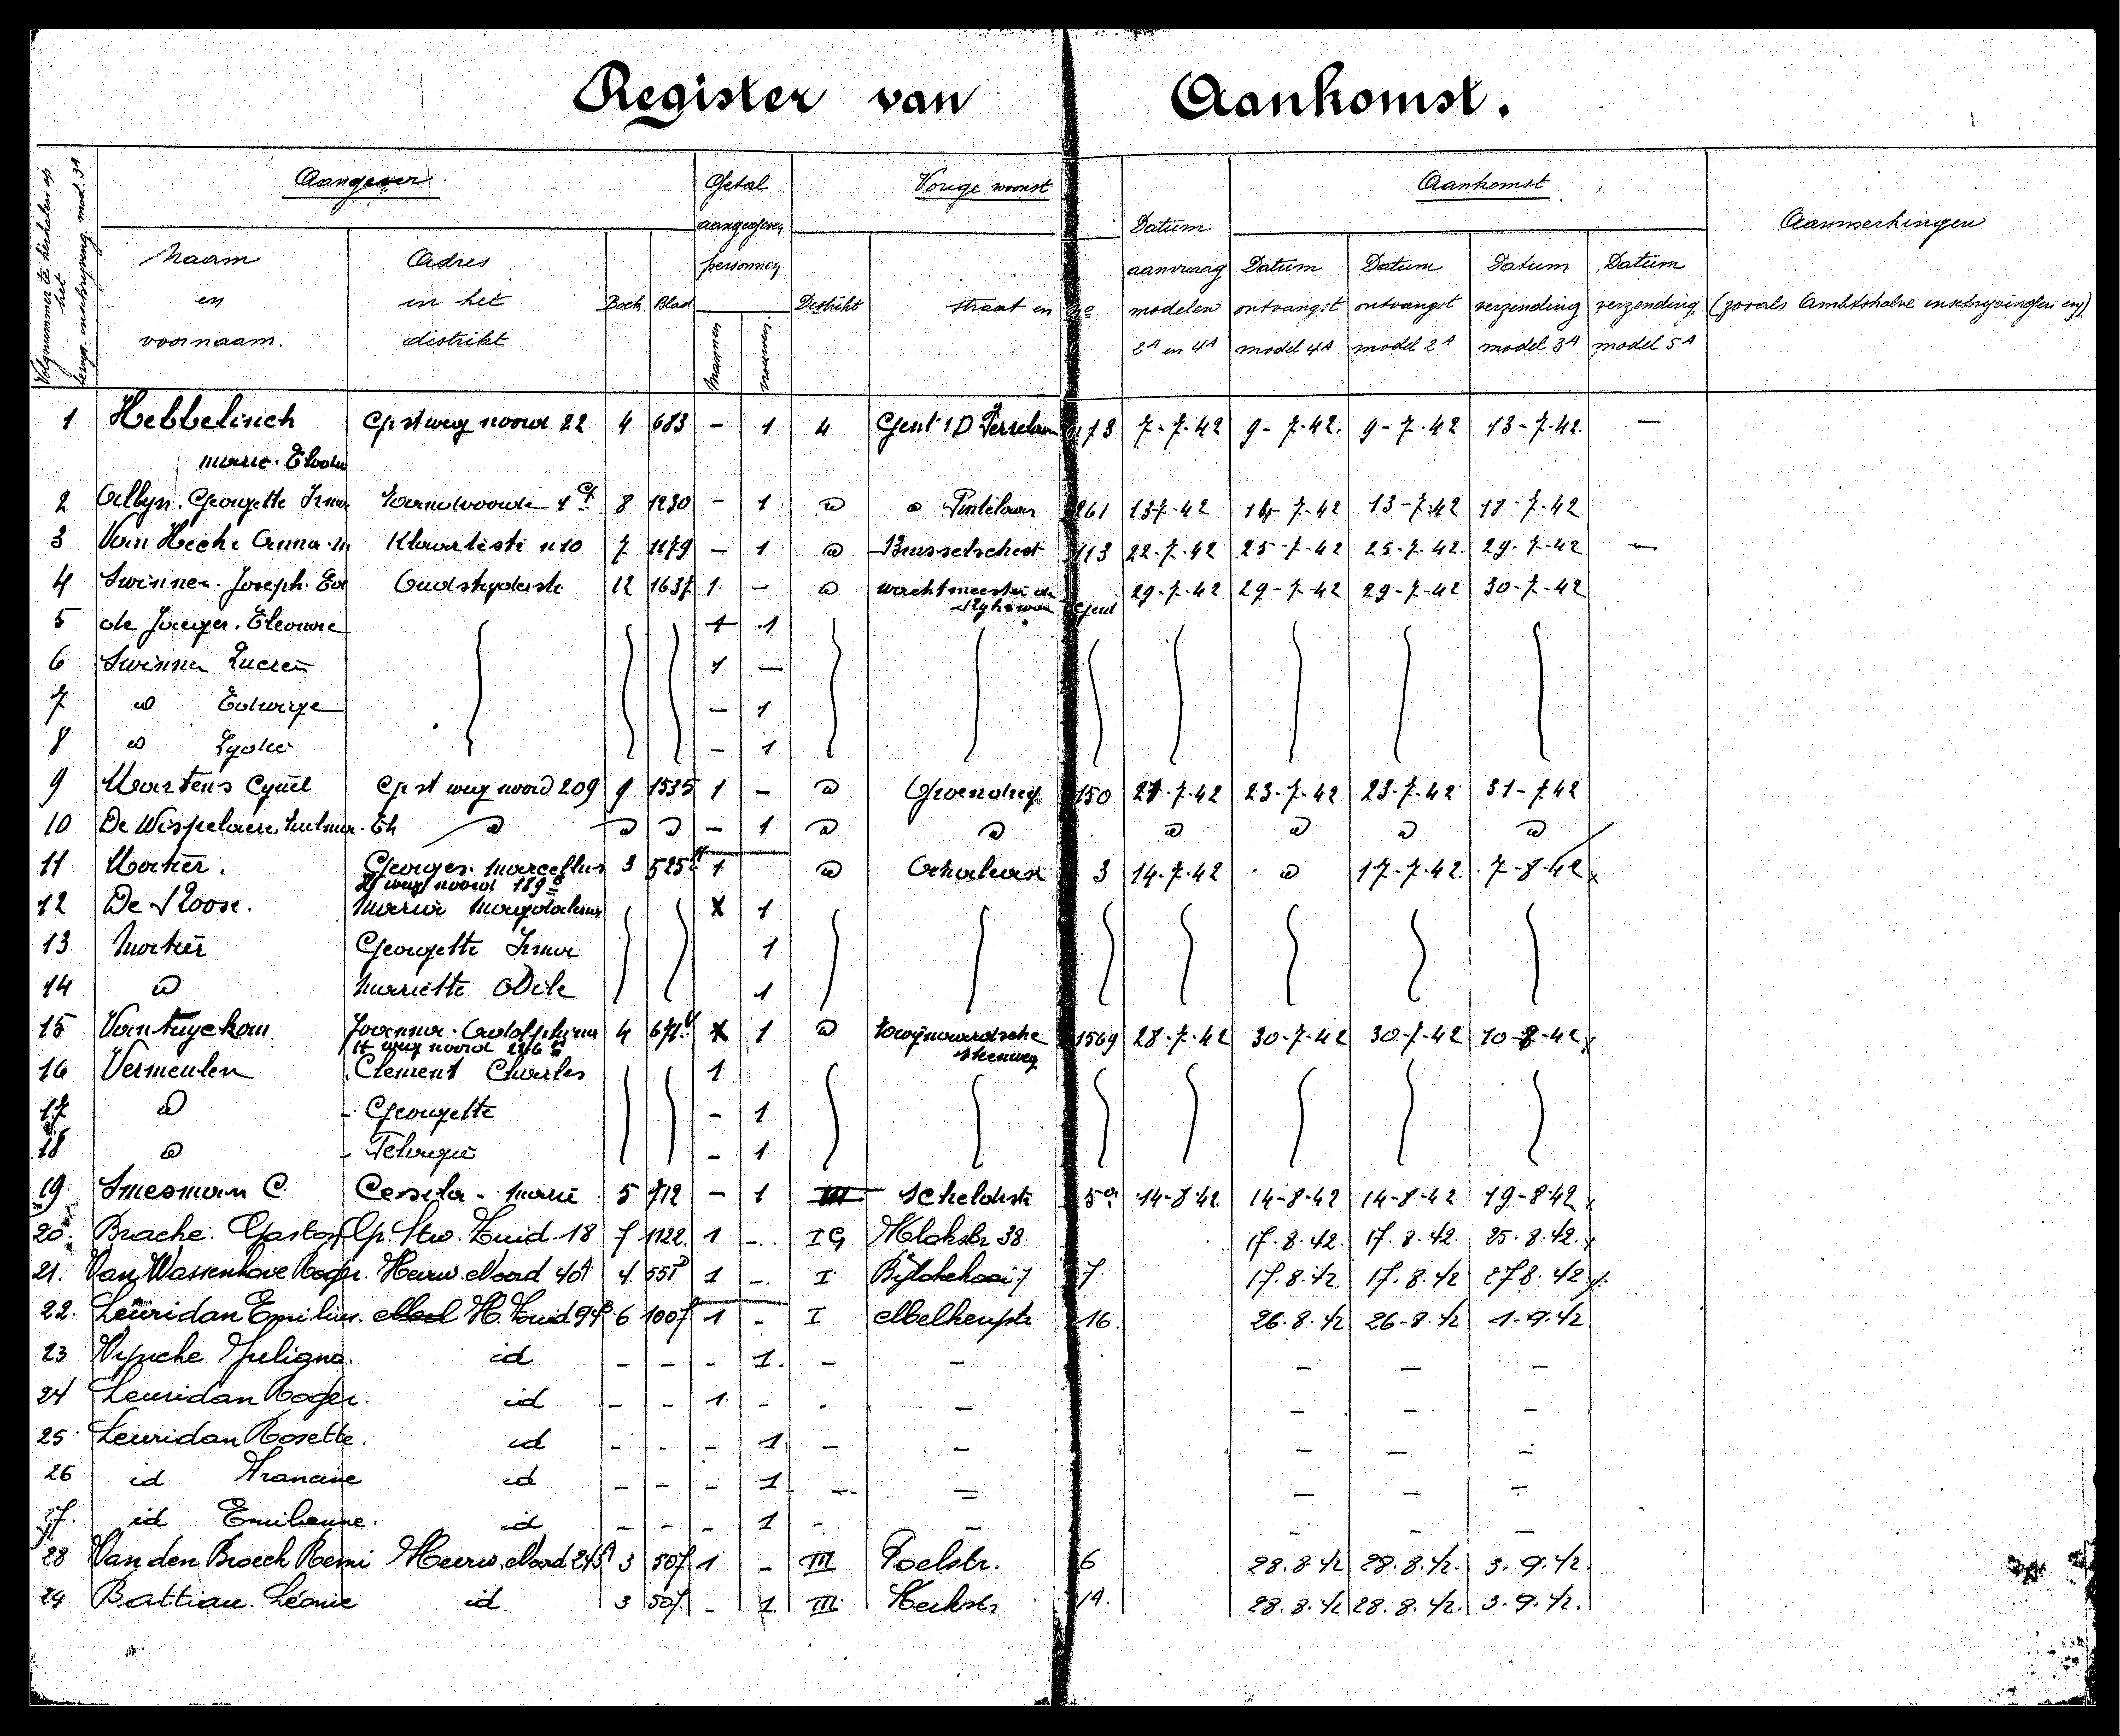 Register van Aankomst.
Volgnummer te herhalen op het inschrijving. mod. 3A
Aangever. Getal Vorige woonst Aankomst
aangegeven Datum. Aanmerkingen
Naam Adres personnen aanvraag Datum Datum Datum Datum
en in het Boek Blad Distrikt straat en no modelen ontvangst ontvangst verzending verzending (zooals Ambtshalve inschrijvingen enz)
voornaam. distrikt Mannen vrouwen. 2A en 4A model 4A model 2A model 3A model 5A
1 Hebbelinck st weg noord 22 4 683 - 1 4 Gent 1D 73 7-7-42 9-7-42. 9-7-42 13-7-42. —
Marie.
2 Georgette Irma 8 1230 - 1 Pintelaan 261 13-7-42 14-7-42 13-7-42 18-7-42
3 Van Hecke Anna 7 1179 - 1 Brusselschest 113 22-7-42 25-7-42 25-7-42. 29-7-42 —
4 Swinnen. Joseph. Oudstryderstr 12 1637 1. - wachtmeester Gent 29-7-42 29-7-42 29-7-42 30-7-42
5 de Jaeger. Eleonore 1 1
6 Swinnen Lucien 1 —
7 Edwige - 1
8 Lydie - 1
9 Martens Cyriel st weg noord 209 9 1535 1 - Groendreef 150 21-7-42 23-7-42 23-7-42 31-7-42
10 De Wispelaere - 1
11 Mortier. Georges. Marcellus 3 525 1 3 14-7-42 17-7-42. 7-8-42 x
st weg noord 189
12 De Roose. Maria Magdalena X 1
13 Mortier Georgette Irma 1
14 Mariette Odile 1
15 Joanna. Adolphina 4 671 X 1 Zwijnaardsche 1569 28-7-42 30-7-42 30-7-42 10-8-42 x
st weg noord 226 steenweg
16 Vermeulen Clement Charles 1
17 - Georgette - 1
18 - - 1
19 Smesman C. Marie 5 712 - 1 III Scheldestr 5 14-8-42. 14-8-42 14-8-42 19-8-42 x
20. Bracke. Gaston Op. Stw. Zuid 18 7 1122. 1 -. 38 17.8.42. 17.8.42. 25.8.42. x
21. Van Wassenhove Roger. Heerw. Noord 401 4. 551 1 -. I Bijlokekaai 7 7. 17.8.42. 17.8.42 27.8.42. x.
22. Leuridan Emilius. H. Zuid 6 1007 1 - I 16. 26.8.42 26-8.42 1-9.42
23 id - - - 1. - - - - -
24 Leuridan Roger. id - - 1. - - - - - -
25 Leuridan Rosette. id - - - 1. - - - - -
26 id Francine id - - - 1. - - - - -
27. id Emilienne. id - - - 1 - - - - -
28 Van den Broeck Remi Heerw. Noord 3 507 1 - III Poelstr. 6 28.8.42 28.8.42. 3.9.42.
29 Battiau. Léonie id 3 507. - 1. III 14. 28.8.42 28.8.42. 3.9.42.